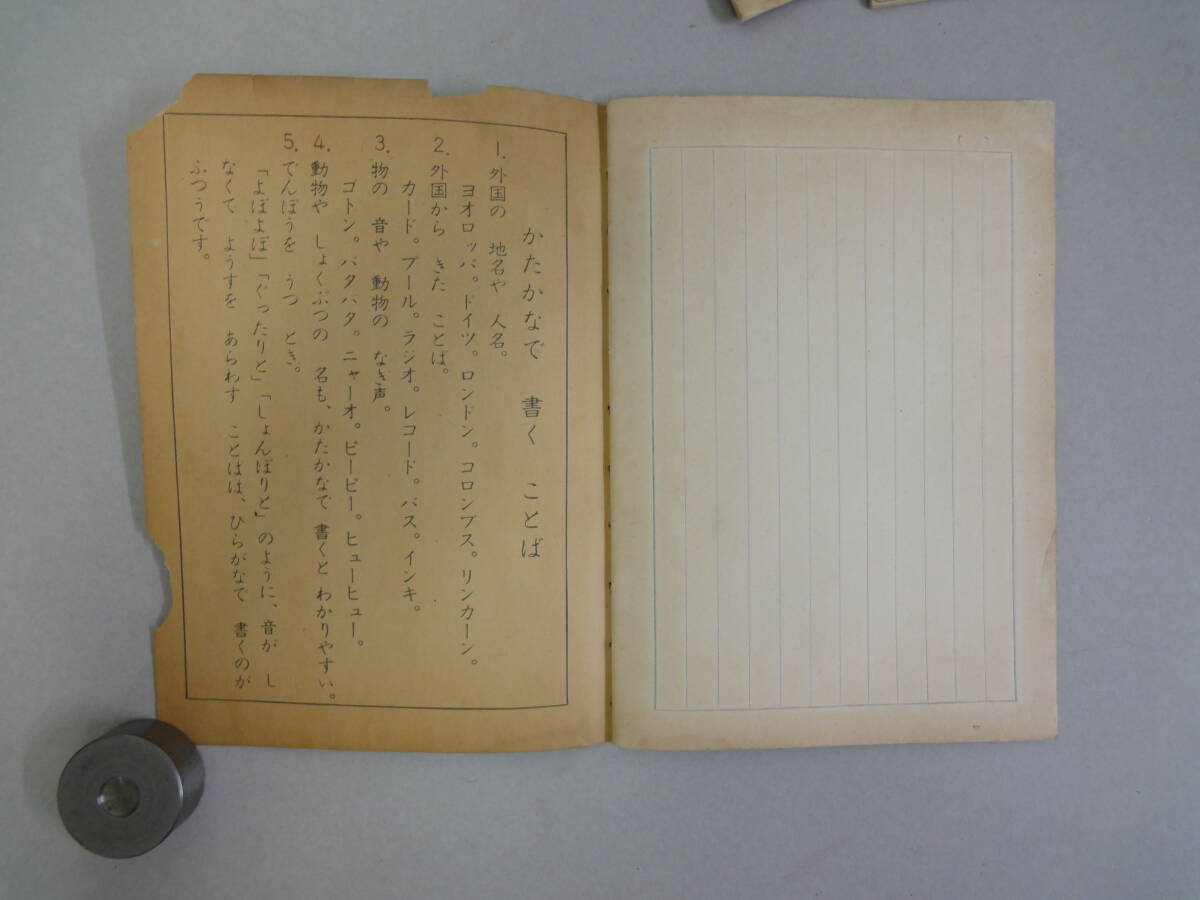 かたかなで　書く　ことば
1. 外国の　地名や　人名。
ヨオロッパ。ドイツ。ロンドン。コロンブス。リンカーン。
2. 外国から　きた　ことば。
カード。プール。ラジオ。レコード。バス。インキ。
3. 物の　音や　動物の　なき声。
ゴトン。バタバタ。ニャーオ。ピーピー。ヒューヒュー。
4. 動物や　しょくぶつの　名も、かたかなで　書くと　わかりやすい。
5. でんぽうを　うつ　とき。
「よぼよぼ」「ぐったりと」「しょんぼりと」のように、音が　し
なくて　ようすを　あらわす　ことばは、ひらがなで　書くのが
ふつうです。